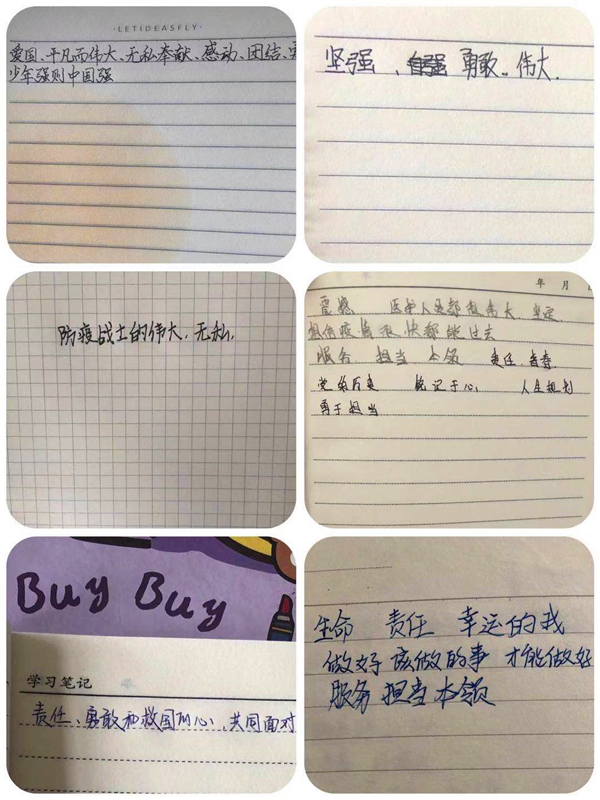 LETIDEASFLY
爱国、平凡而伟大、无私奉献、感动、团结、
少年强则中国强
坚强、自强 勇敢。伟大.
防疫战士的伟大,无私,
年 月
震撼 医护人员都很伟大 坚定
相信疫情很快都能过去
服务 担当 本领 责任 青春
党的历史 铭记于心 人生规划
勇于担当
Buy Buy
学习笔记
责任、勇敢和救国的心、共同面对
生命 责任 幸运的我
做好该做的事 才能做好
服务 担当 本领